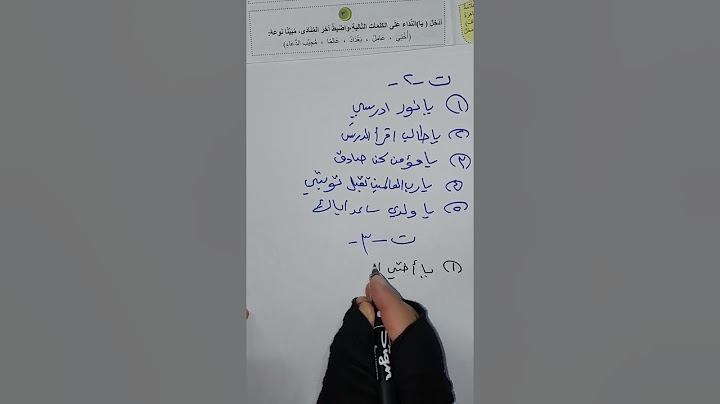 ٣
أدْخِلْ ( يا)النِّداءِ على الكلماتِ التَّاليةِ،واضْبِطْ آخرَ المُنادى، مُبَيِّنًا نوعَهُ:
(أُخْتي ، عامِلٌ ، بَغْدادُ ، عَالِمًا ، مُجيبُ الدُّعاءِ)
ت -٢-
١) يا نور ادرسي
٢) يا طالب اقرأ الدرسَ
٣) يا مؤمن كن صادق
٤) يا رب العالمين تقبل توبتي
٥) يا ولدي ساعد اباك
ت -٣-
١) يا أختي